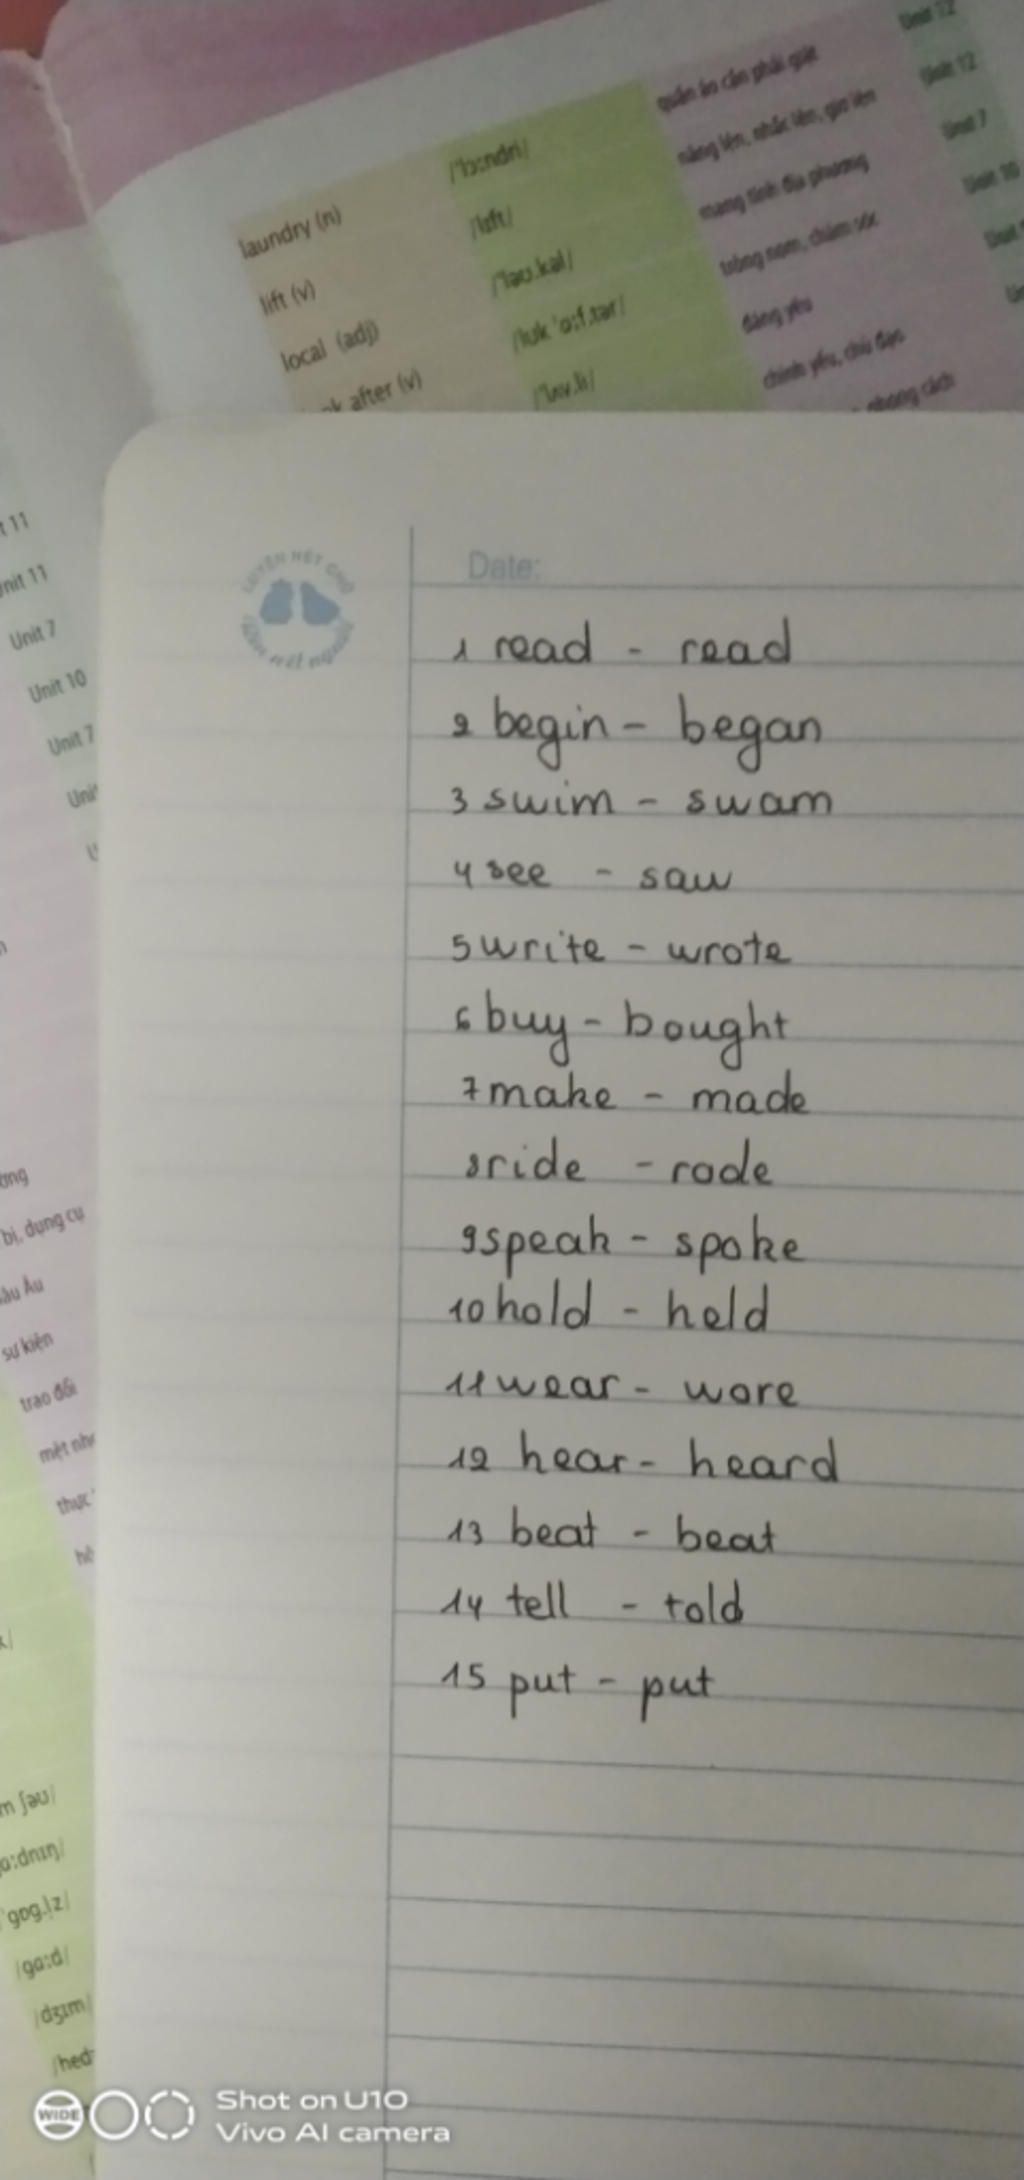 Unit 12
quần áo cần phải giặt
Unit 12
/'lɔːndri/
nâng lên, nhấc lên, giơ lên
Unit 7
laundry (n)
/lɪft/
mang tính địa phương
Unit 10
lift (v)
/'ləʊ.kəl/
trông nom, chăm sóc
Unit
local (adj)
/lʊk 'ɑːf.tər/
đáng yêu
after (v)
/'lʌv.li/
chính yếu, chủ đạo
phong cách
11
Unit 11
Unit 7
Unit 10
Unit 7
Unit
LUYỆN NÉT CHỮ
Rèn nết người
Date:
1 read - read
2 begin - began
3 swim - swam
4 see - saw
5 write - wrote
6 buy - bought
7 make - made
8 ride - rode
9 speak - spoke
10 hold - held
11 wear - wore
12 hear - heard
13 beat - beat
14 tell - told
15 put - put
bị, dụng cụ
Âu
sự kiện
trao đổi
mệt
ʃəʊ/
/gɑːd/
/dʒɪm/
WIDE
Shot on U10
Vivo AI camera